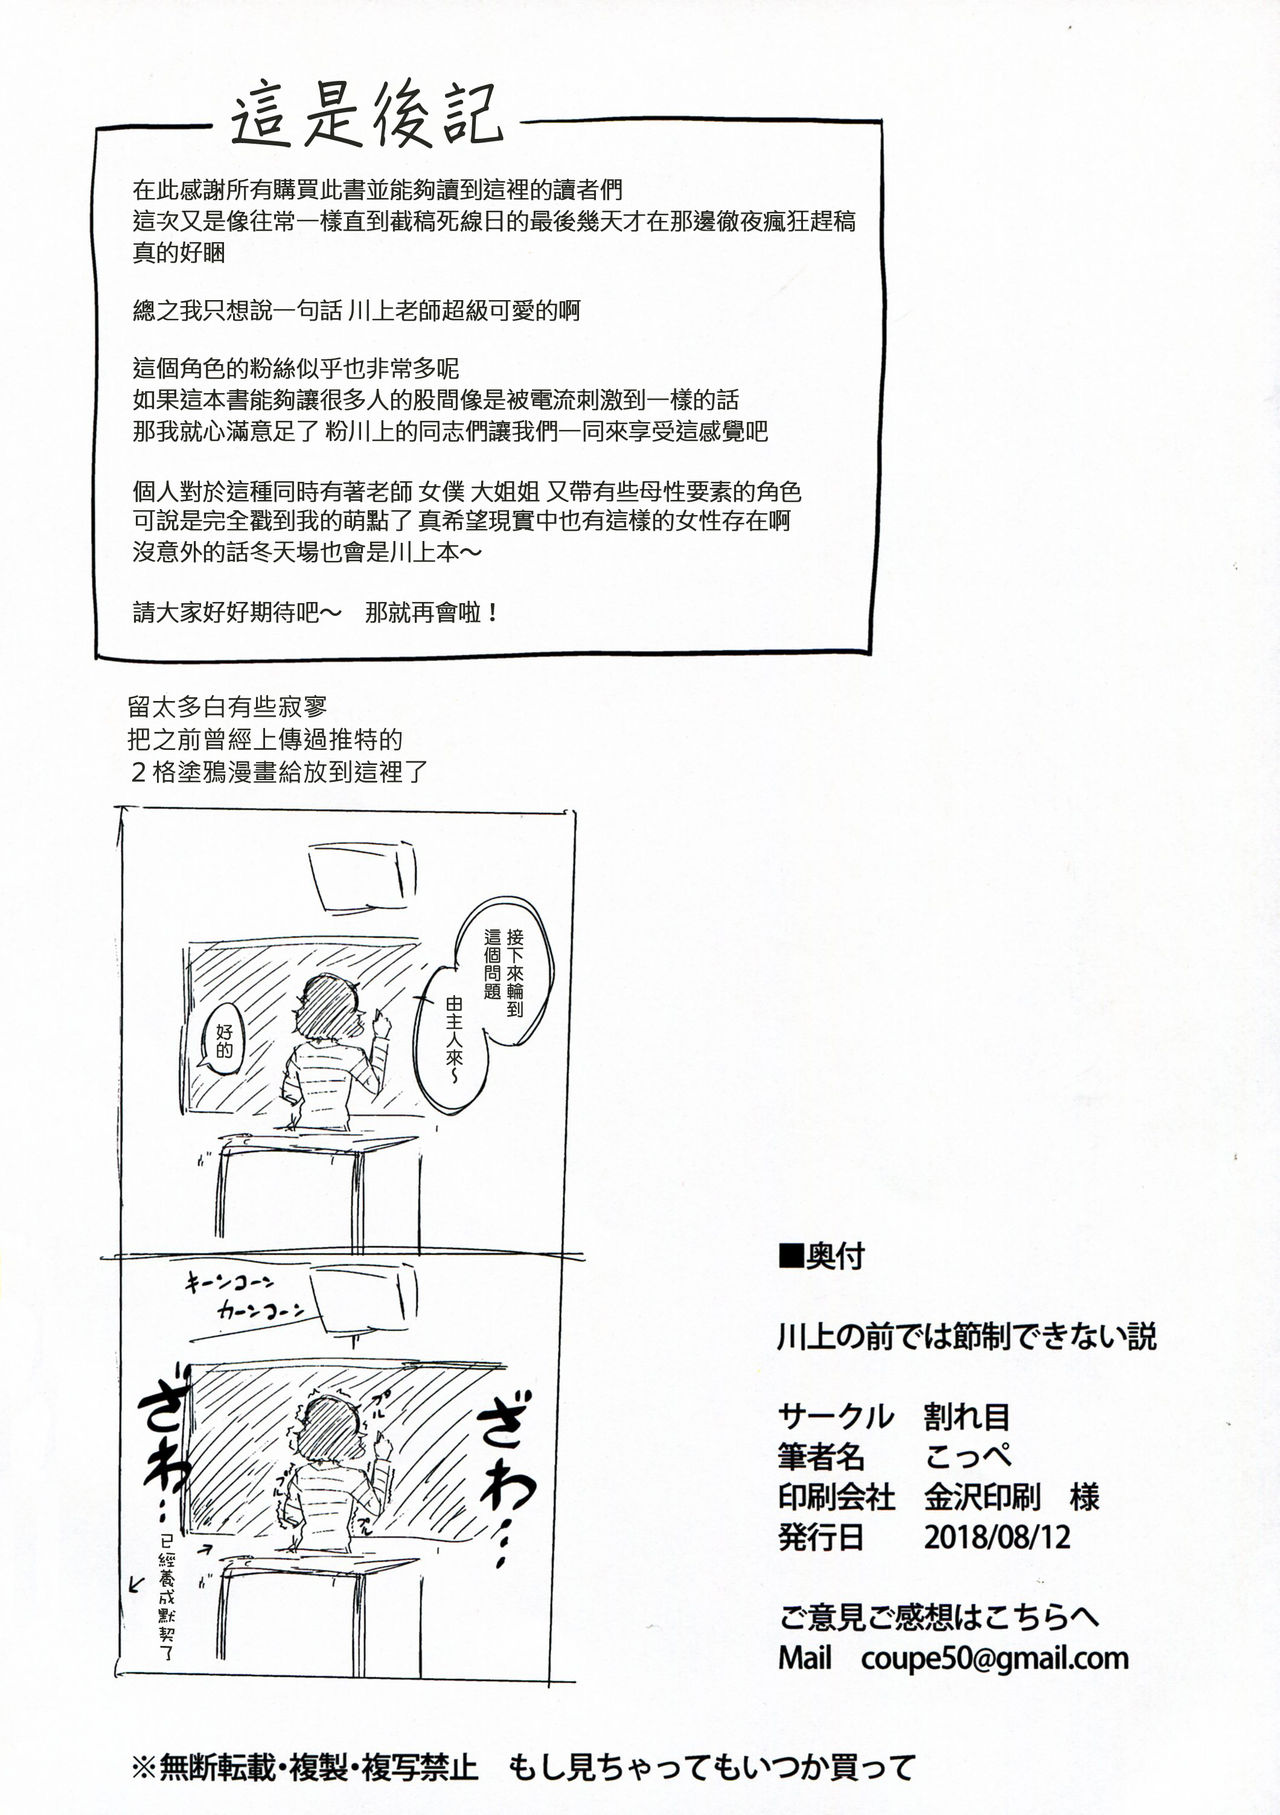 這是後記
在此感謝所有購買此書並能夠讀到這裡的讀者們
這次又是像往常一樣直到截稿死線日的最後幾天才在那邊徹夜瘋狂趕稿
真的好睏
總之我只想說一句話 川上老師超級可愛的啊
這個角色的粉絲似乎也非常多呢
如果這本書能夠讓很多人的股間像是被電流刺激到一樣的話
那我就心滿意足了 粉川上的同志們讓我們一同來享受這感覺吧
個人對於這種同時有著老師 女僕 大姐姐 又帶有些母性要素的角色
可說是完全戳到我的萌點了 真希望現實中也有這樣的女性存在啊
沒意外的話冬天場也會是川上本～
請大家好好期待吧～　那就再會啦！
留太多白有些寂寥
把之前曾經上傳過推特的
２格塗鴉漫畫給放到這裡了
接下來輪到
這個問題
由主人來～
好的
キーンコーン
カーンコーン
ざわ…
ざわ…
プルプル
プルプル
プルプル
已經養成默契了
■奥付
川上の前では節制できない説
サークル　割れ目
筆者名　こっぺ
印刷会社　金沢印刷　様
発行日　2018/08/12
ご意見ご感想はこちらへ
Mail　coupe50@gmail.com
※無断転載・複製・複写禁止　もし見ちゃってもいつか買って